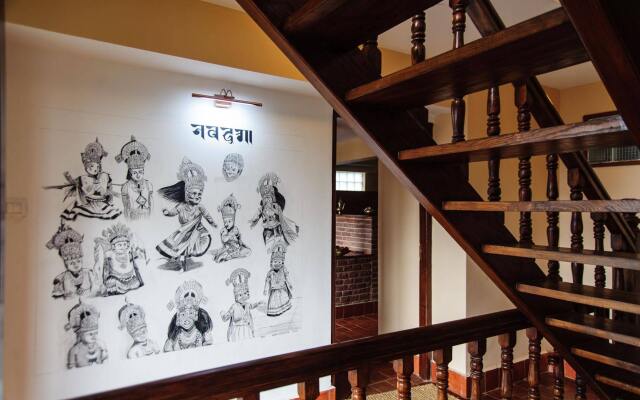 नवदुर्गा